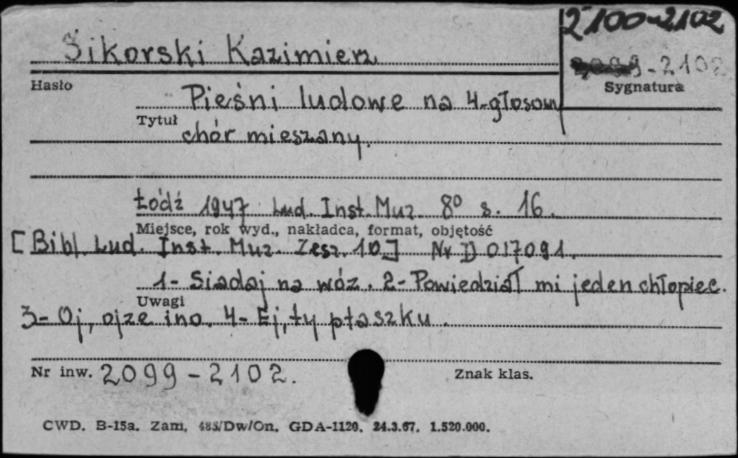 2100-2102
Sikorski Kazimierz
2099-2102
Hasło
Sygnatura
Pieśni ludowe na 4-głosowy
Tytuł
chór mieszany.
Łódź 1947 Lud. Inst. Muz. 8º s. 16.
Miejsce, rok wyd., nakładca, format, objętość
[Bibl. Lud. Inst. Muz. Zesz. 10] Nr D 017091.
1- Siadaj na wóz. 2- Powiedział mi jeden chłopiec.
Uwagi
3- Oj, ojze ino. 4- Ej, ty ptaszku.
Nr inw. 2099-2102.
Znak klas.
CWD. B-15a. Zam. 485/Dw/On. GDA-1120. 24.3.67. 1.520.000.